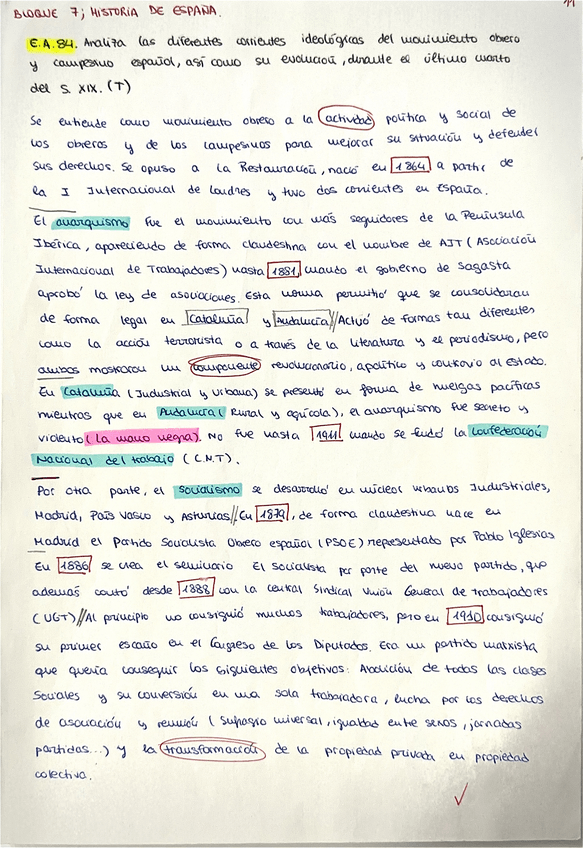 BLOQUE 7; HISTORIA DE ESPAÑA.
11
E.A.84. Analiza las diferentes corrientes ideológicas del movimiento obrero
y campesino español, así como su evolución, durante el último cuarto
del S. XIX. (T)
Se entiende como movimiento obrero a la actividad política y social de
los obreros y de los campesinos para mejorar su situación y defender
sus derechos. Se opuso a la Restauración, nació en 1864 a partir de
la I Internacional de Londres y tuvo dos corrientes en España.
El anarquismo fue el movimiento con más seguidores de la Península
Ibérica, apareciendo de forma clandestina con el nombre de AIT (Asociación
Internacional de Trabajadores) hasta 1881, cuando el gobierno de Sagasta
aprobó la ley de asociaciones. Esta norma permitió que se consolidaran
de forma legal en Cataluña y Andalucía // Actuó de formas tan diferentes
como la acción terrorista o a través de la literatura y el periodismo, pero
ambas mostraron un componente revolucionario, apolítico y contrario al Estado.
En Cataluña (Industrial y urbana) se presentó en forma de huelgas pacíficas
mientras que en Andalucía (Rural y agrícola), el anarquismo fue secreto y
violento (la mano negra). No fue hasta 1911 cuando se fundó la Confederación
Nacional del trabajo (C.N.T).
Por otra parte, el Socialismo se desarrolló en núcleos urbanos Industriales,
Madrid, País Vasco y Asturias // En 1879, de forma clandestina nace en
Madrid el Partido Socialista Obrero español (PSOE) representado por Pablo Iglesias
En 1886 se crea el seminario El socialista por parte del nuevo partido, que
además contó desde 1888 con la central Sindical Unión General de trabajadores
(UGT) // Al principio no consiguió muchos trabajadores, pero en 1910 consiguió
su primer escaño en el Congreso de los Diputados. Era un partido marxista
que quería conseguir los siguientes objetivos: Abolición de todas las clases
Sociales y su conversión en una sola trabajadora, lucha por los derechos
de asociación y reunión (Sufragio universal, igualdad entre sexos, jornadas
partidas...) y la transformación de la propiedad privada en propiedad
colectiva.